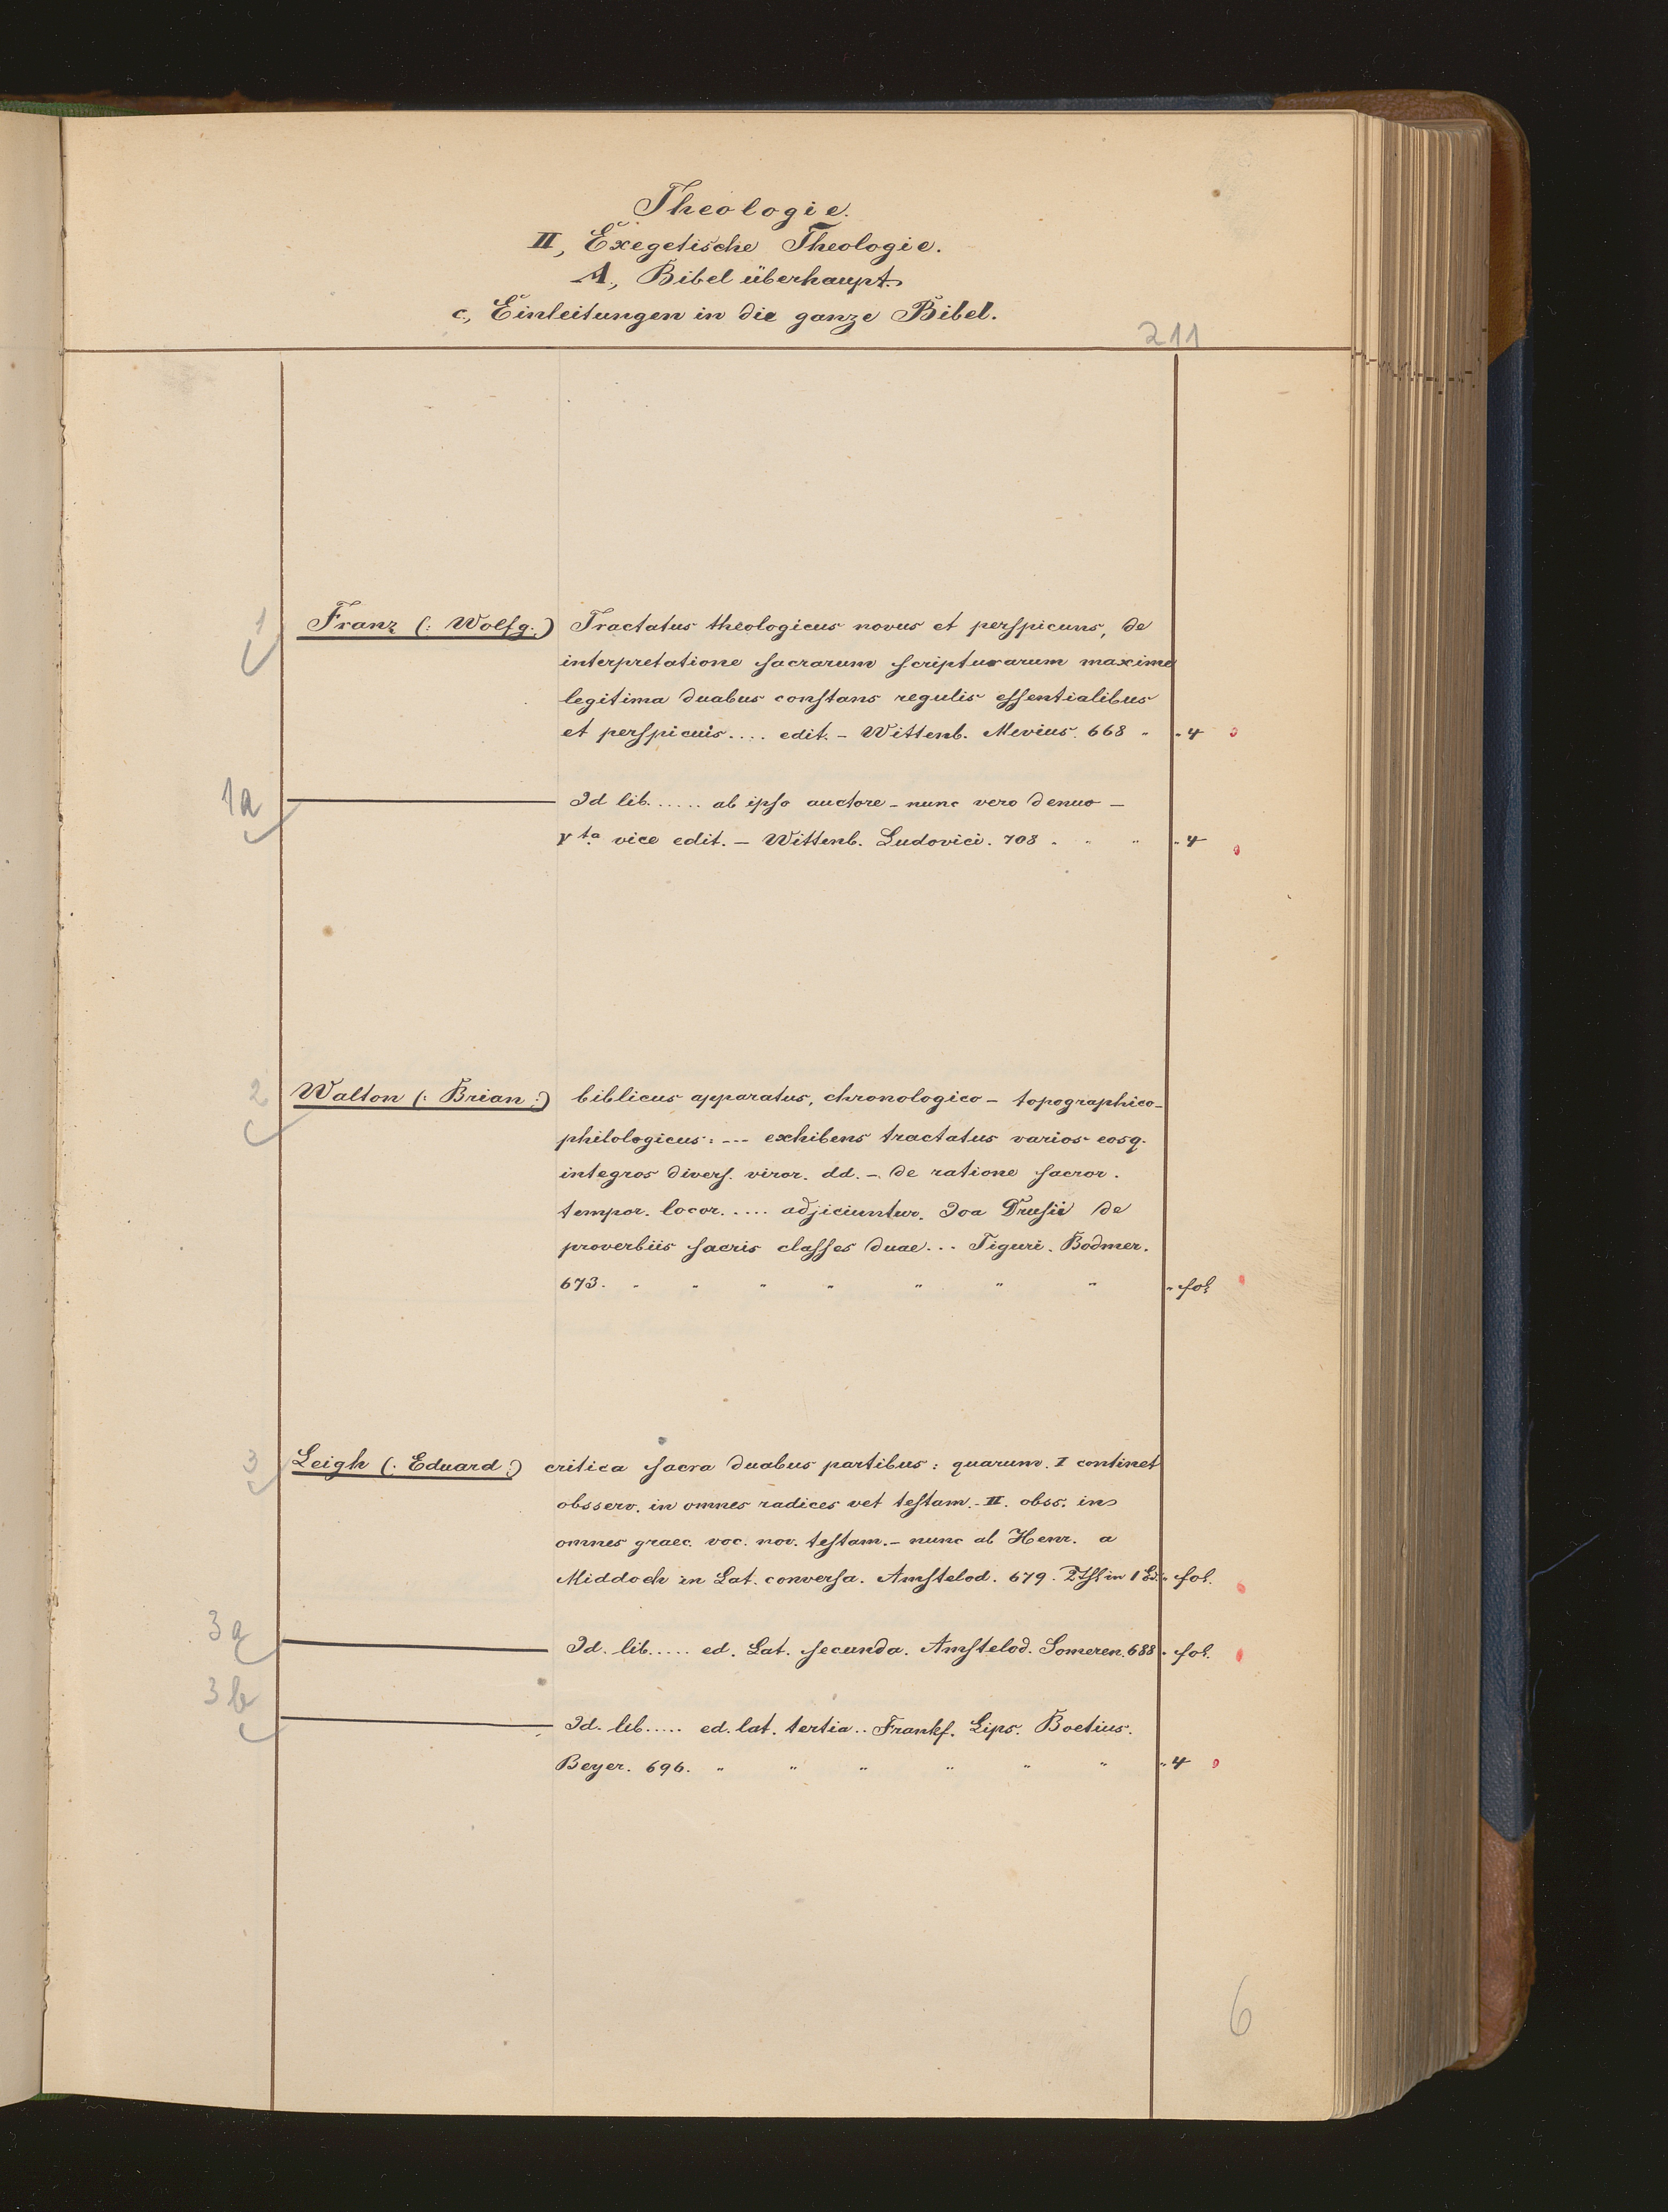 Theologie.
II, Exegetische Theologie.
A., Bibel überhaupt.
c, Einleitungen in die ganze Bibel.
211
1 Franz (: Wolfg.) Tractatus theologicus novus et perspicuus, de
interpretatione sacrarum scripturarum maxime
legitima duabus constans regulis essentialibus
et perspicuis.... edit. - Wittenb. Mevius. 668 " " 4
1a Id lib...... ab ipso auctore - nunc vero denuo -
Vta. vice edit. - Wittenb. Ludovici. 708 . " " " 4
2 Walton (: Brian :) biblicus apparatus, chronologico - topographico-
philologicus: --- exhibens tractatus varios eosq.
integros divers. viror. dd. - de ratione sacror.
tempor. locor..... adjiciuntur. Joa Drusii de
proverbiis sacris classes duae... Tiguri. Bodmer.
673. " " " " " " " " fol
3 Leigh (: Eduard :) critica sacra duabus partibus: quarum. I continet
obsserv. in omnes radices vet testam. - II. obss. in
omnes graec. voc. nov. testam. - nunc ab Henr. a
Middoch in Lat. conversa. Amstelod. 679. 2 Thl in 1 Bd. " fol.
3a Id. lib..... ed. Lat. secunda. Amstelod. Someren. 688 " fol.
3b Id. lib..... ed. lat. tertia.. Frankf. Lips. Boetius.
Beyer. 696. " " " " " " " 4
6